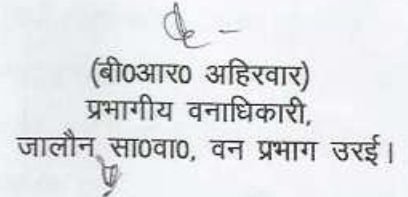 (बी0आर0 अहिरवार)
प्रभागीय वनाधिकारी,
जालौन सा0वा0, वन प्रभाग उरई।